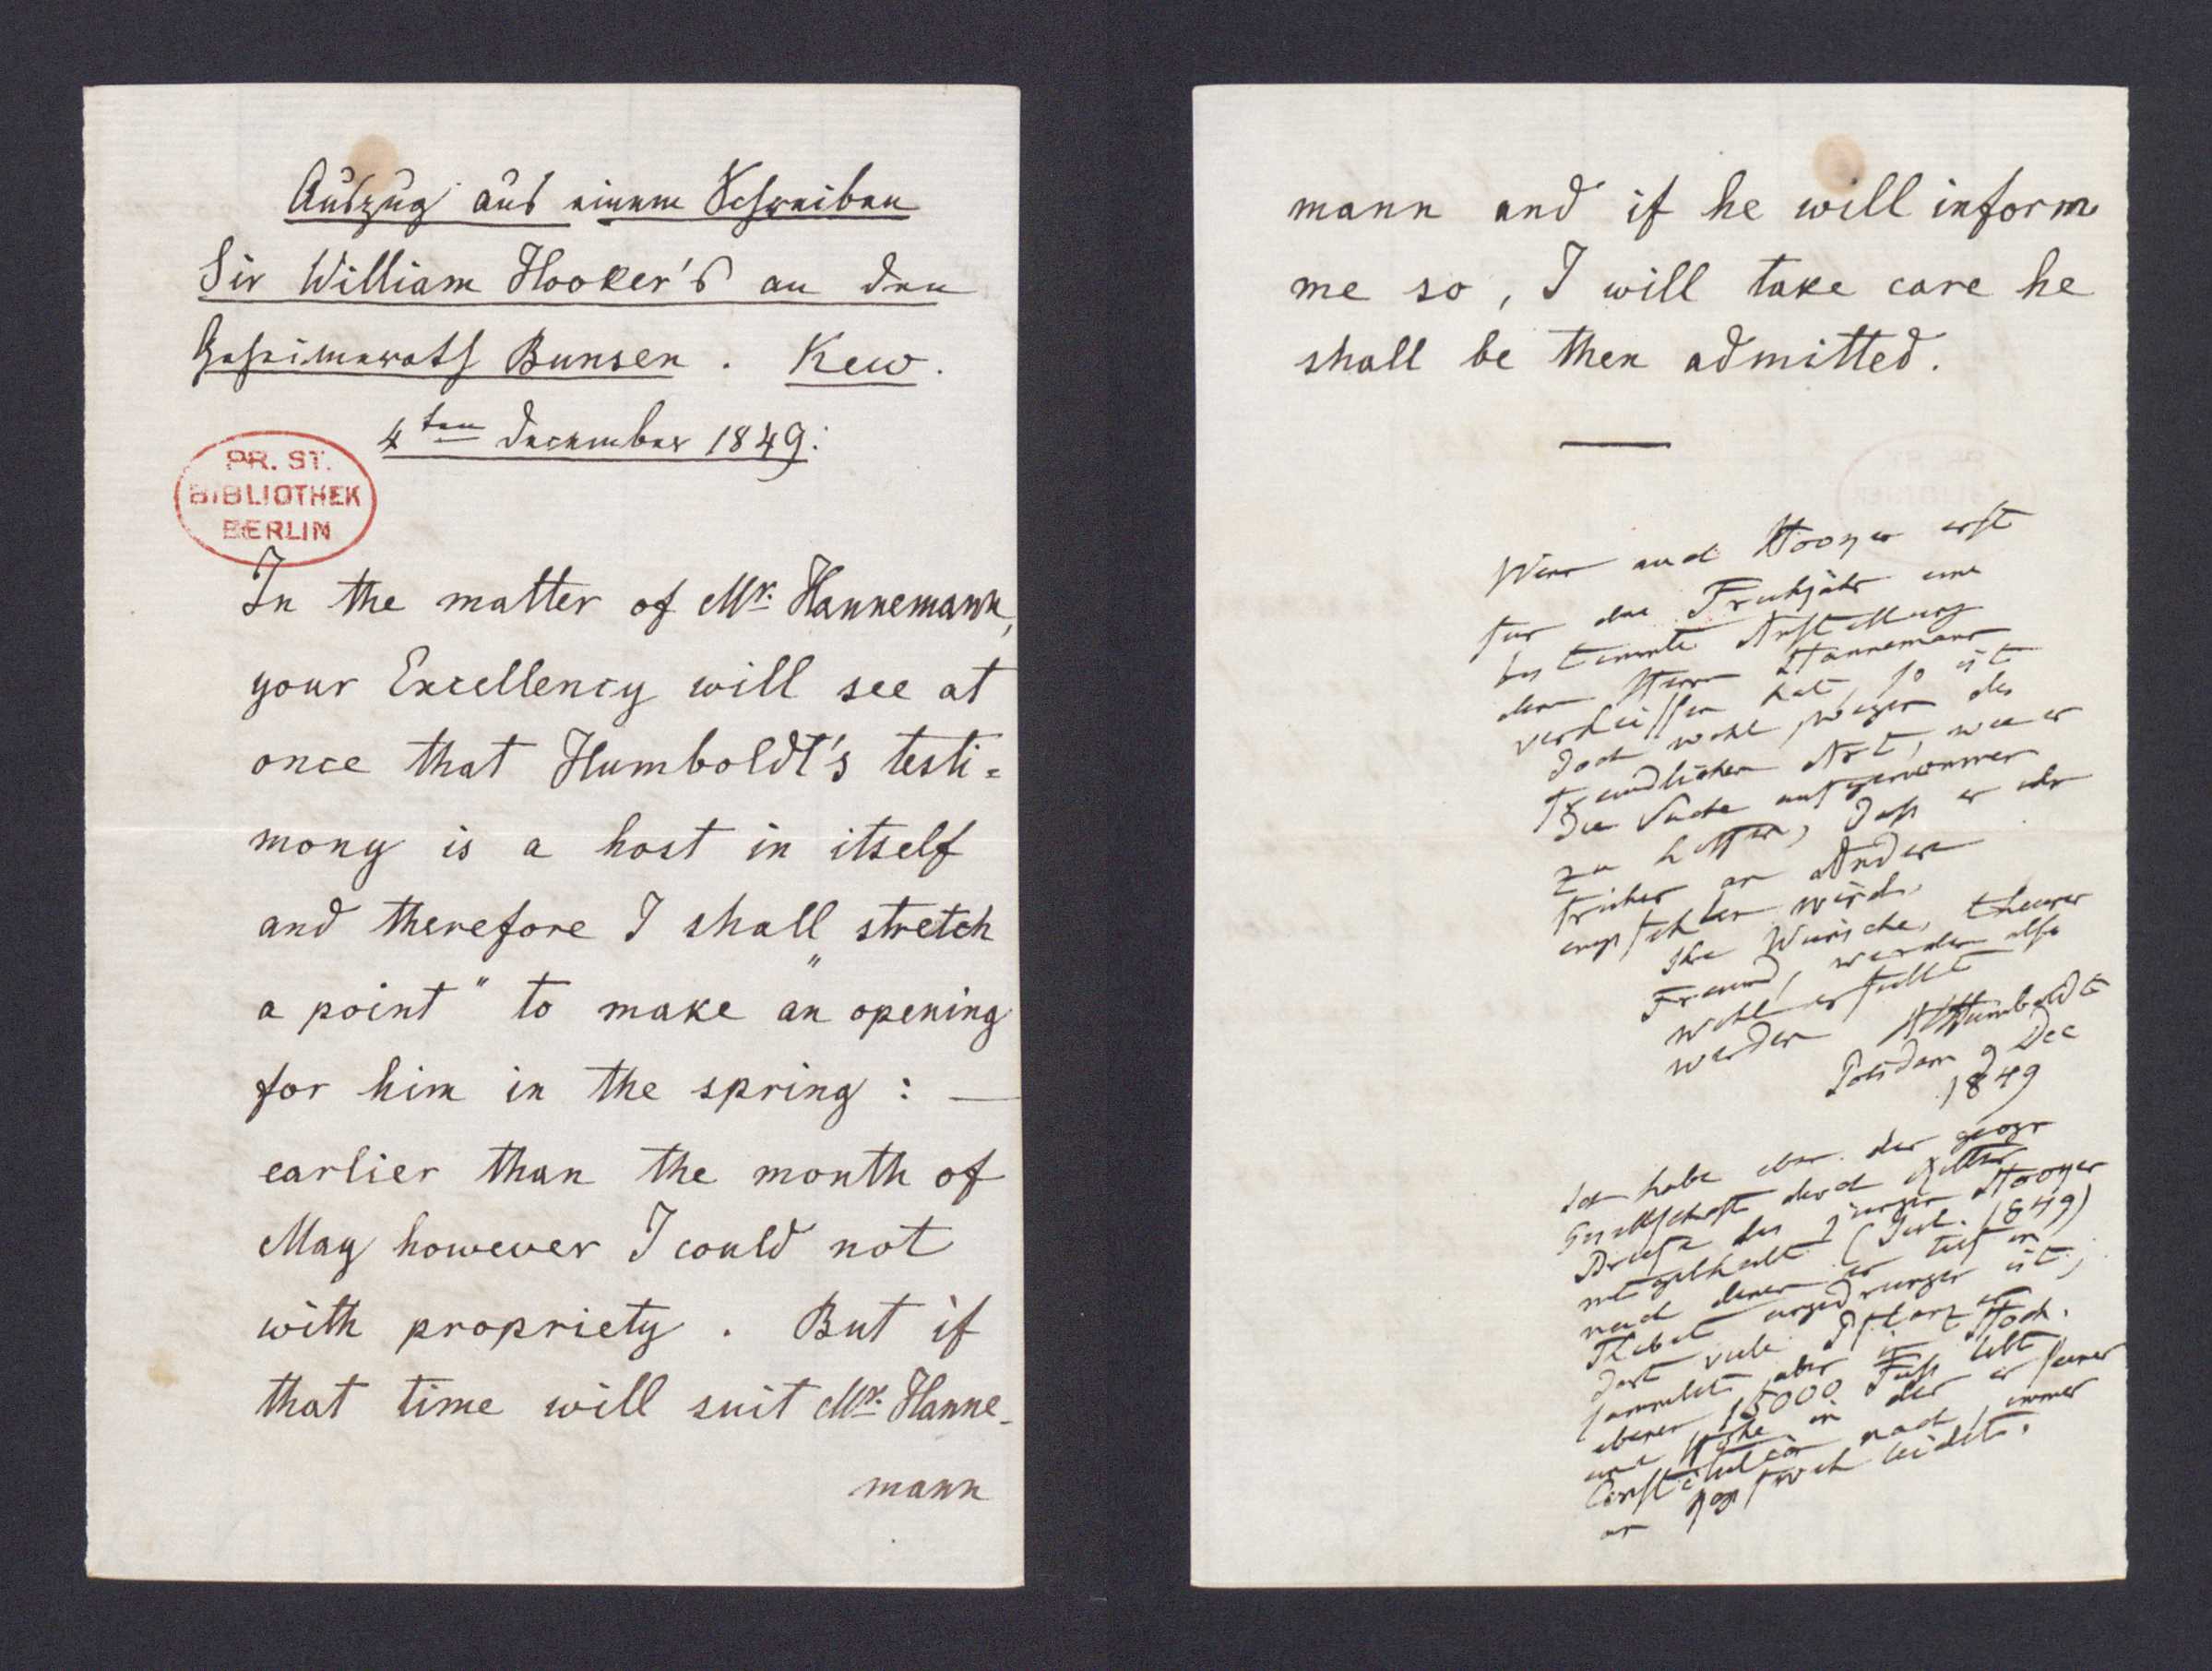 Auszug aus einem Schreiben
Sir William Hooker's an den
Geheimerath Bunsen. Kew.
4ten December 1849:
PR. ST.
BIBLIOTHEK
BERLIN
In the matter of Mr. Hannemann,
your Excellency will see at
once that Humboldt's testi=
mony is a host in itself
and therefore I shall "stretch
a point" to make an opening
for him in the spring: —
earlier than the month of
May however I could not
with propriety. But if
that time will suit Mr. Hanne-
mann
mann and if he will inform
me so, I will take care he
shall be then admitted.
Wenn auch Hooker erst
für das Frühjahr eine
bestimmte Anstellung
dem Herrn Hannemann
verheissen hat, so ist
doch wohl, wegen der
freundlichen Art, wie er
die Sache aufgenommen
zu hoffen, dass er ihn
früher an Andere
empfehlen wird.
Ihre Wünsche, theurer
Freund, werden also
wohl erfüllt
werden AHumboldt
Potsdam 9 Dec
1849
Ich habe eben der geogr
Gesellschaft durch Ritter
Briefe des jungen Hooker
mitgetheilt (Jul. 1849)
nach denen er tief in
Tibet eingedrungen ist,
dort viele Pflanzen
sammelt, aber in Hoch.
ebenen 15000 Fuss lebt
eine Höhe in der er seiner
Constitution nach, immer
an Kopfweh leidet.